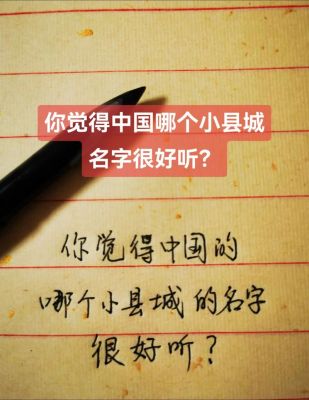 你觉得中国哪个小县城
名字很好听？
你觉得中国的
哪个小县城的名字
很好听？